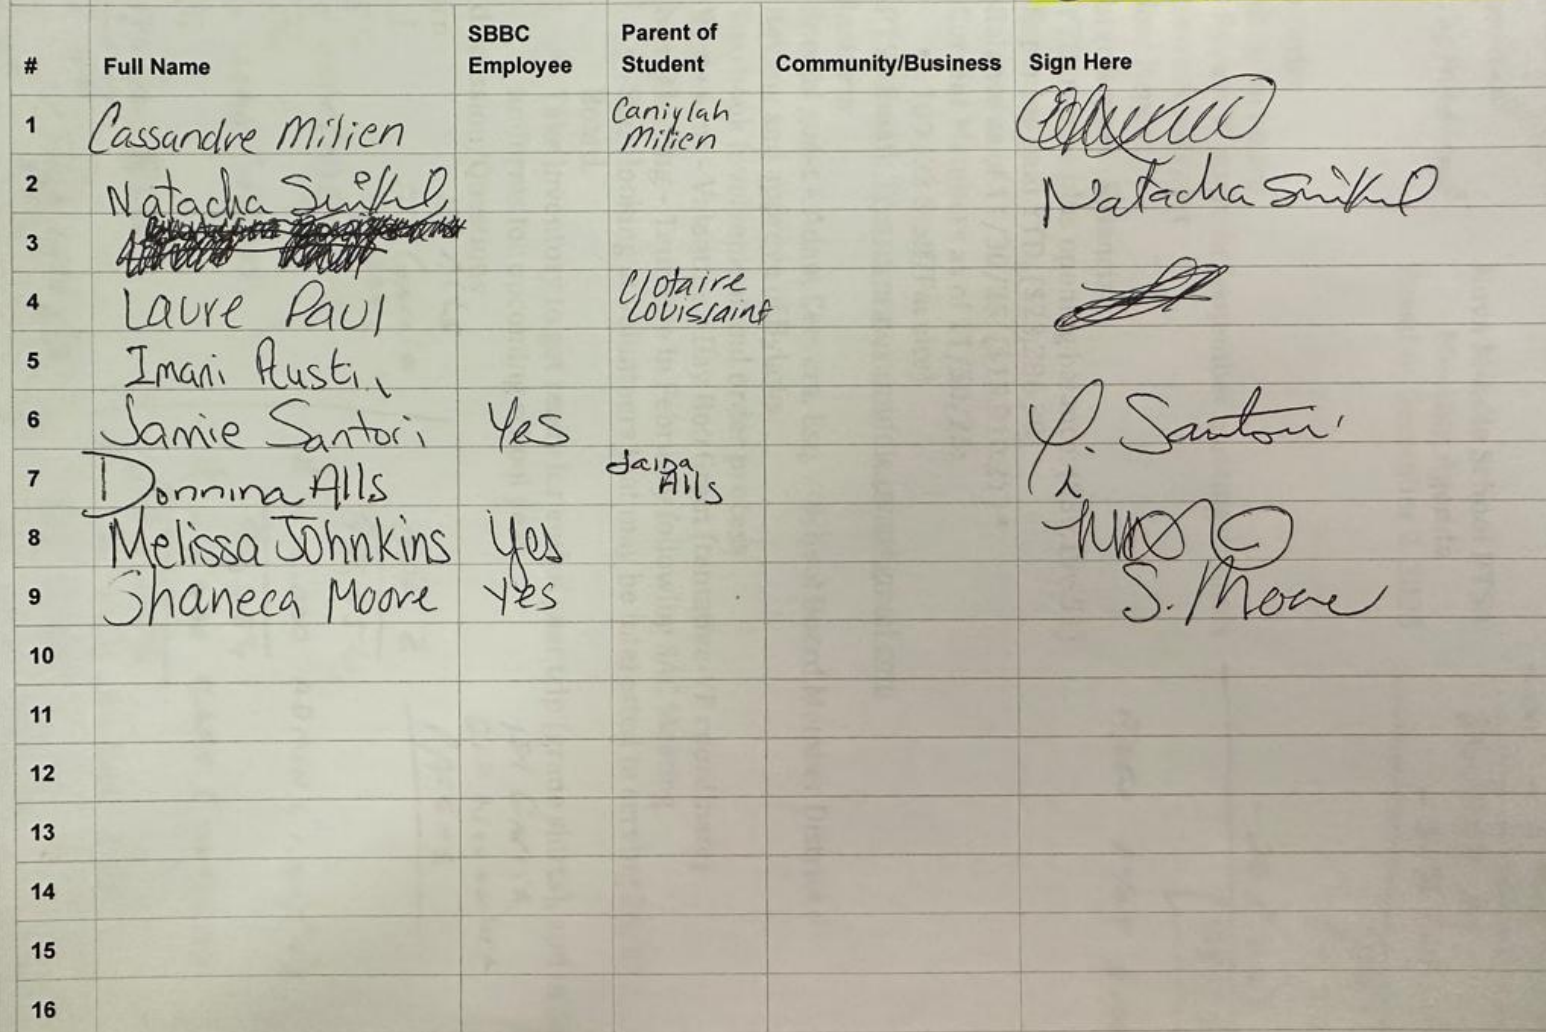 # Full Name SBBC Employee Parent of Student Community/Business Sign Here
1 Cassandre Milien Caniylah Milien
2 Natacha Natacha
3
4 Laure Paul Clotaire Louissaint
5 Imani Austin
6 Jamie Santori Yes J. Santori
7 Donnina Alls Jaina Alls
8 Melissa Johnkins Yes
9 Shaneca Moore Yes S. Moore
10
11
12
13
14
15
16